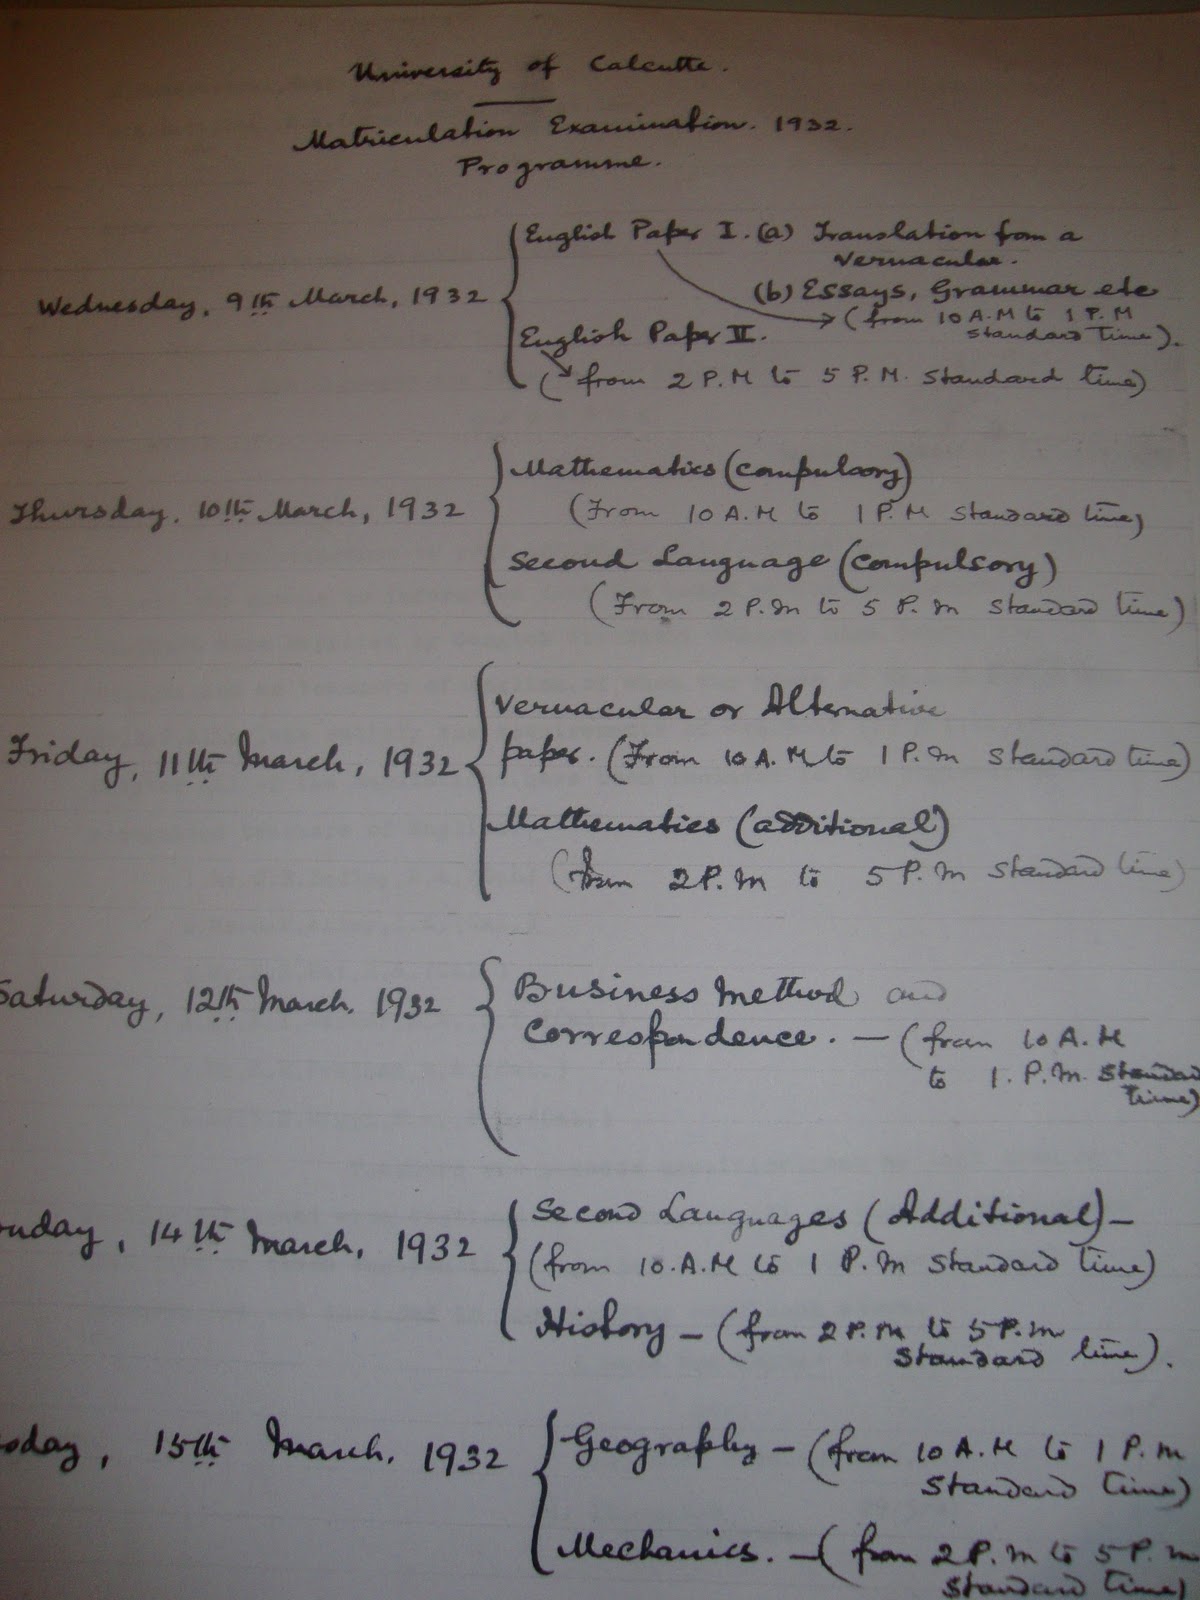 University of Calcutta.
Matriculation Examination. 1932.
Programme.
Wednesday, 9th March, 1932
English Paper I. (a) Translation from a
Vernacular.
(b) Essays, Grammar etc
(from 10 A.M to 1 P.M
Standard Time).
English Paper II.
(from 2 P.M to 5 P.M. Standard time)
Thursday, 10th March, 1932
Mathematics (compulsory)
(From 10 A.M to 1 P.M Standard time)
Second Language (compulsory)
(From 2 P.M to 5 P.M Standard time)
Friday, 11th March, 1932
Vernacular or Alternative
paper. (From 10 A.M to 1 P.M Standard time)
Mathematics (additional)
(from 2 P.M to 5 P.M Standard time)
Saturday, 12th March. 1932
Business Method and
Correspondence. — (from 10 A.M
to 1. P.M. Standard
time)
nday, 14th March, 1932
Second Languages (Additional) —
(from 10.A.M to 1 P.M Standard Time)
History — (from 2 P.M to 5 P.M
Standard time).
sday, 15th March. 1932
Geography — (from 10 A.M to 1 P.M
Standard Time)
Mechanics. — (from 2 P.M to 5 P.M
Standard time)